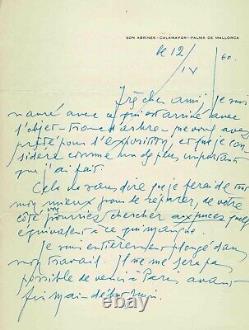 SON ABRINES - CALAMAYOR - PALMA DE MALLORCA
le 12/IV/60.
Très cher ami, je suis
navré avec ce qui est arrivé avec
l'objet-tronc d'arbre - que vous avez
prêté pour l'exposition, et que je con-
sidère comme un des plus important
que j'ai fait.
Cela de vous dire que je ferai de tout
mon mieux pour le réparer, de votre
côté pourriez chercher aux puces quelq
équivalent à ce qui manque.
Je suis entièrement plongé dans
mon travail. Il ne me sera pas
possible de venir à Paris avant
fin mai - début juin.